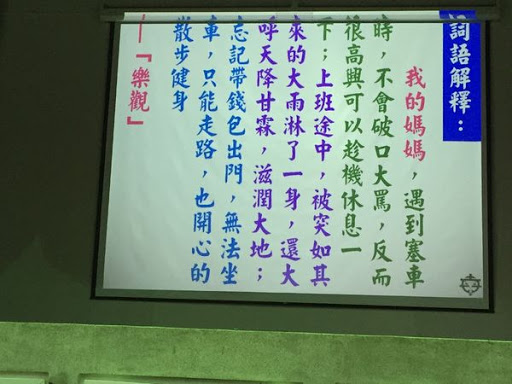 詞語解釋：
我的媽媽，遇到塞車
時，不會破口大罵，反而
很高興可以趁機休息一
下；上班途中，被突如其
來的大雨淋了一身，還大
呼天降甘霖，滋潤大地；
忘記帶錢包出門，無法坐
車，只能走路，也開心的
散步健身
──『樂觀』